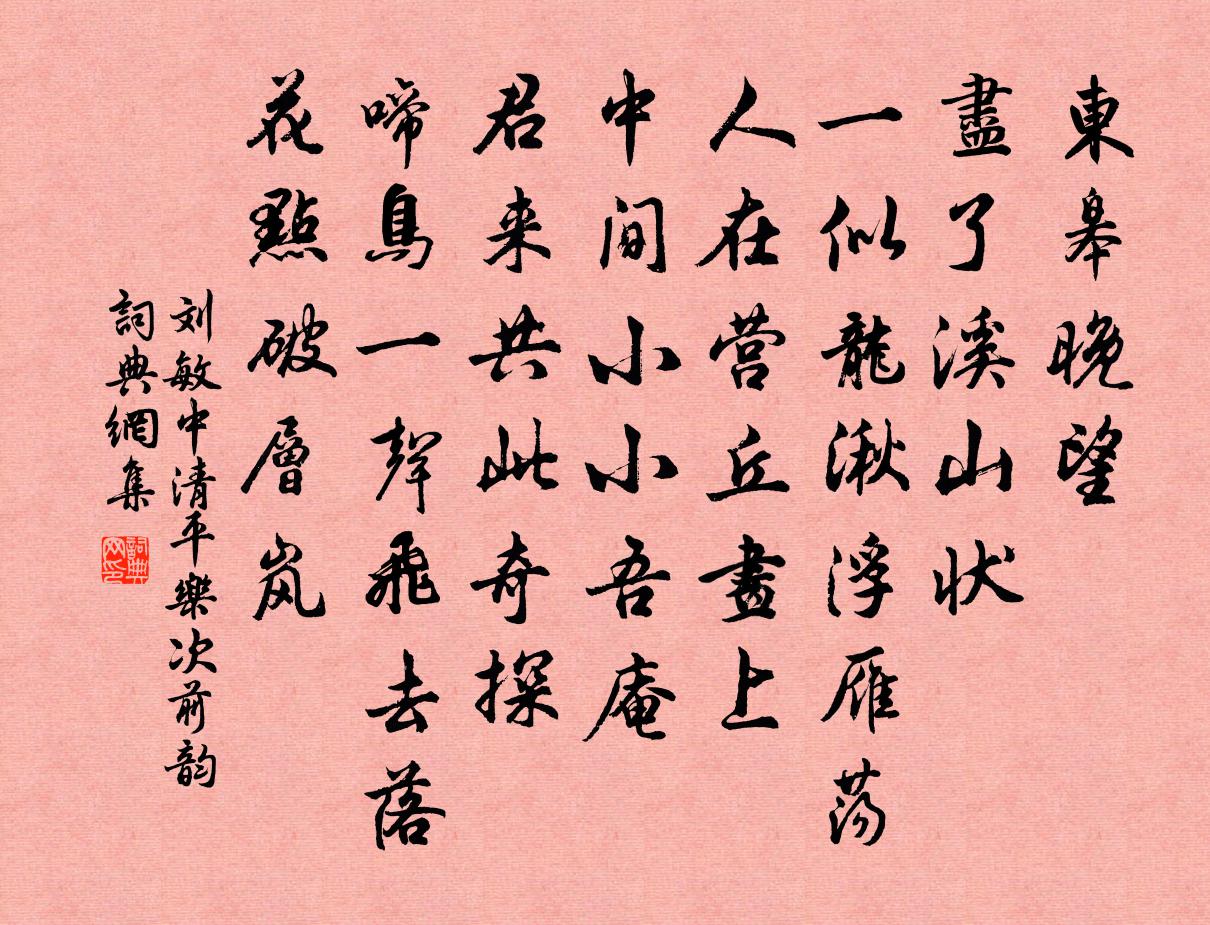 東皋晚望
盡了溪山状
一似龍湫浮雁荡
人在营丘畫上
中间小小吾庵
君来共此奇探
啼鳥一聲飛去落
花點破層岚
刘敏中清平樂次前韵
詞典網集
詞典网印